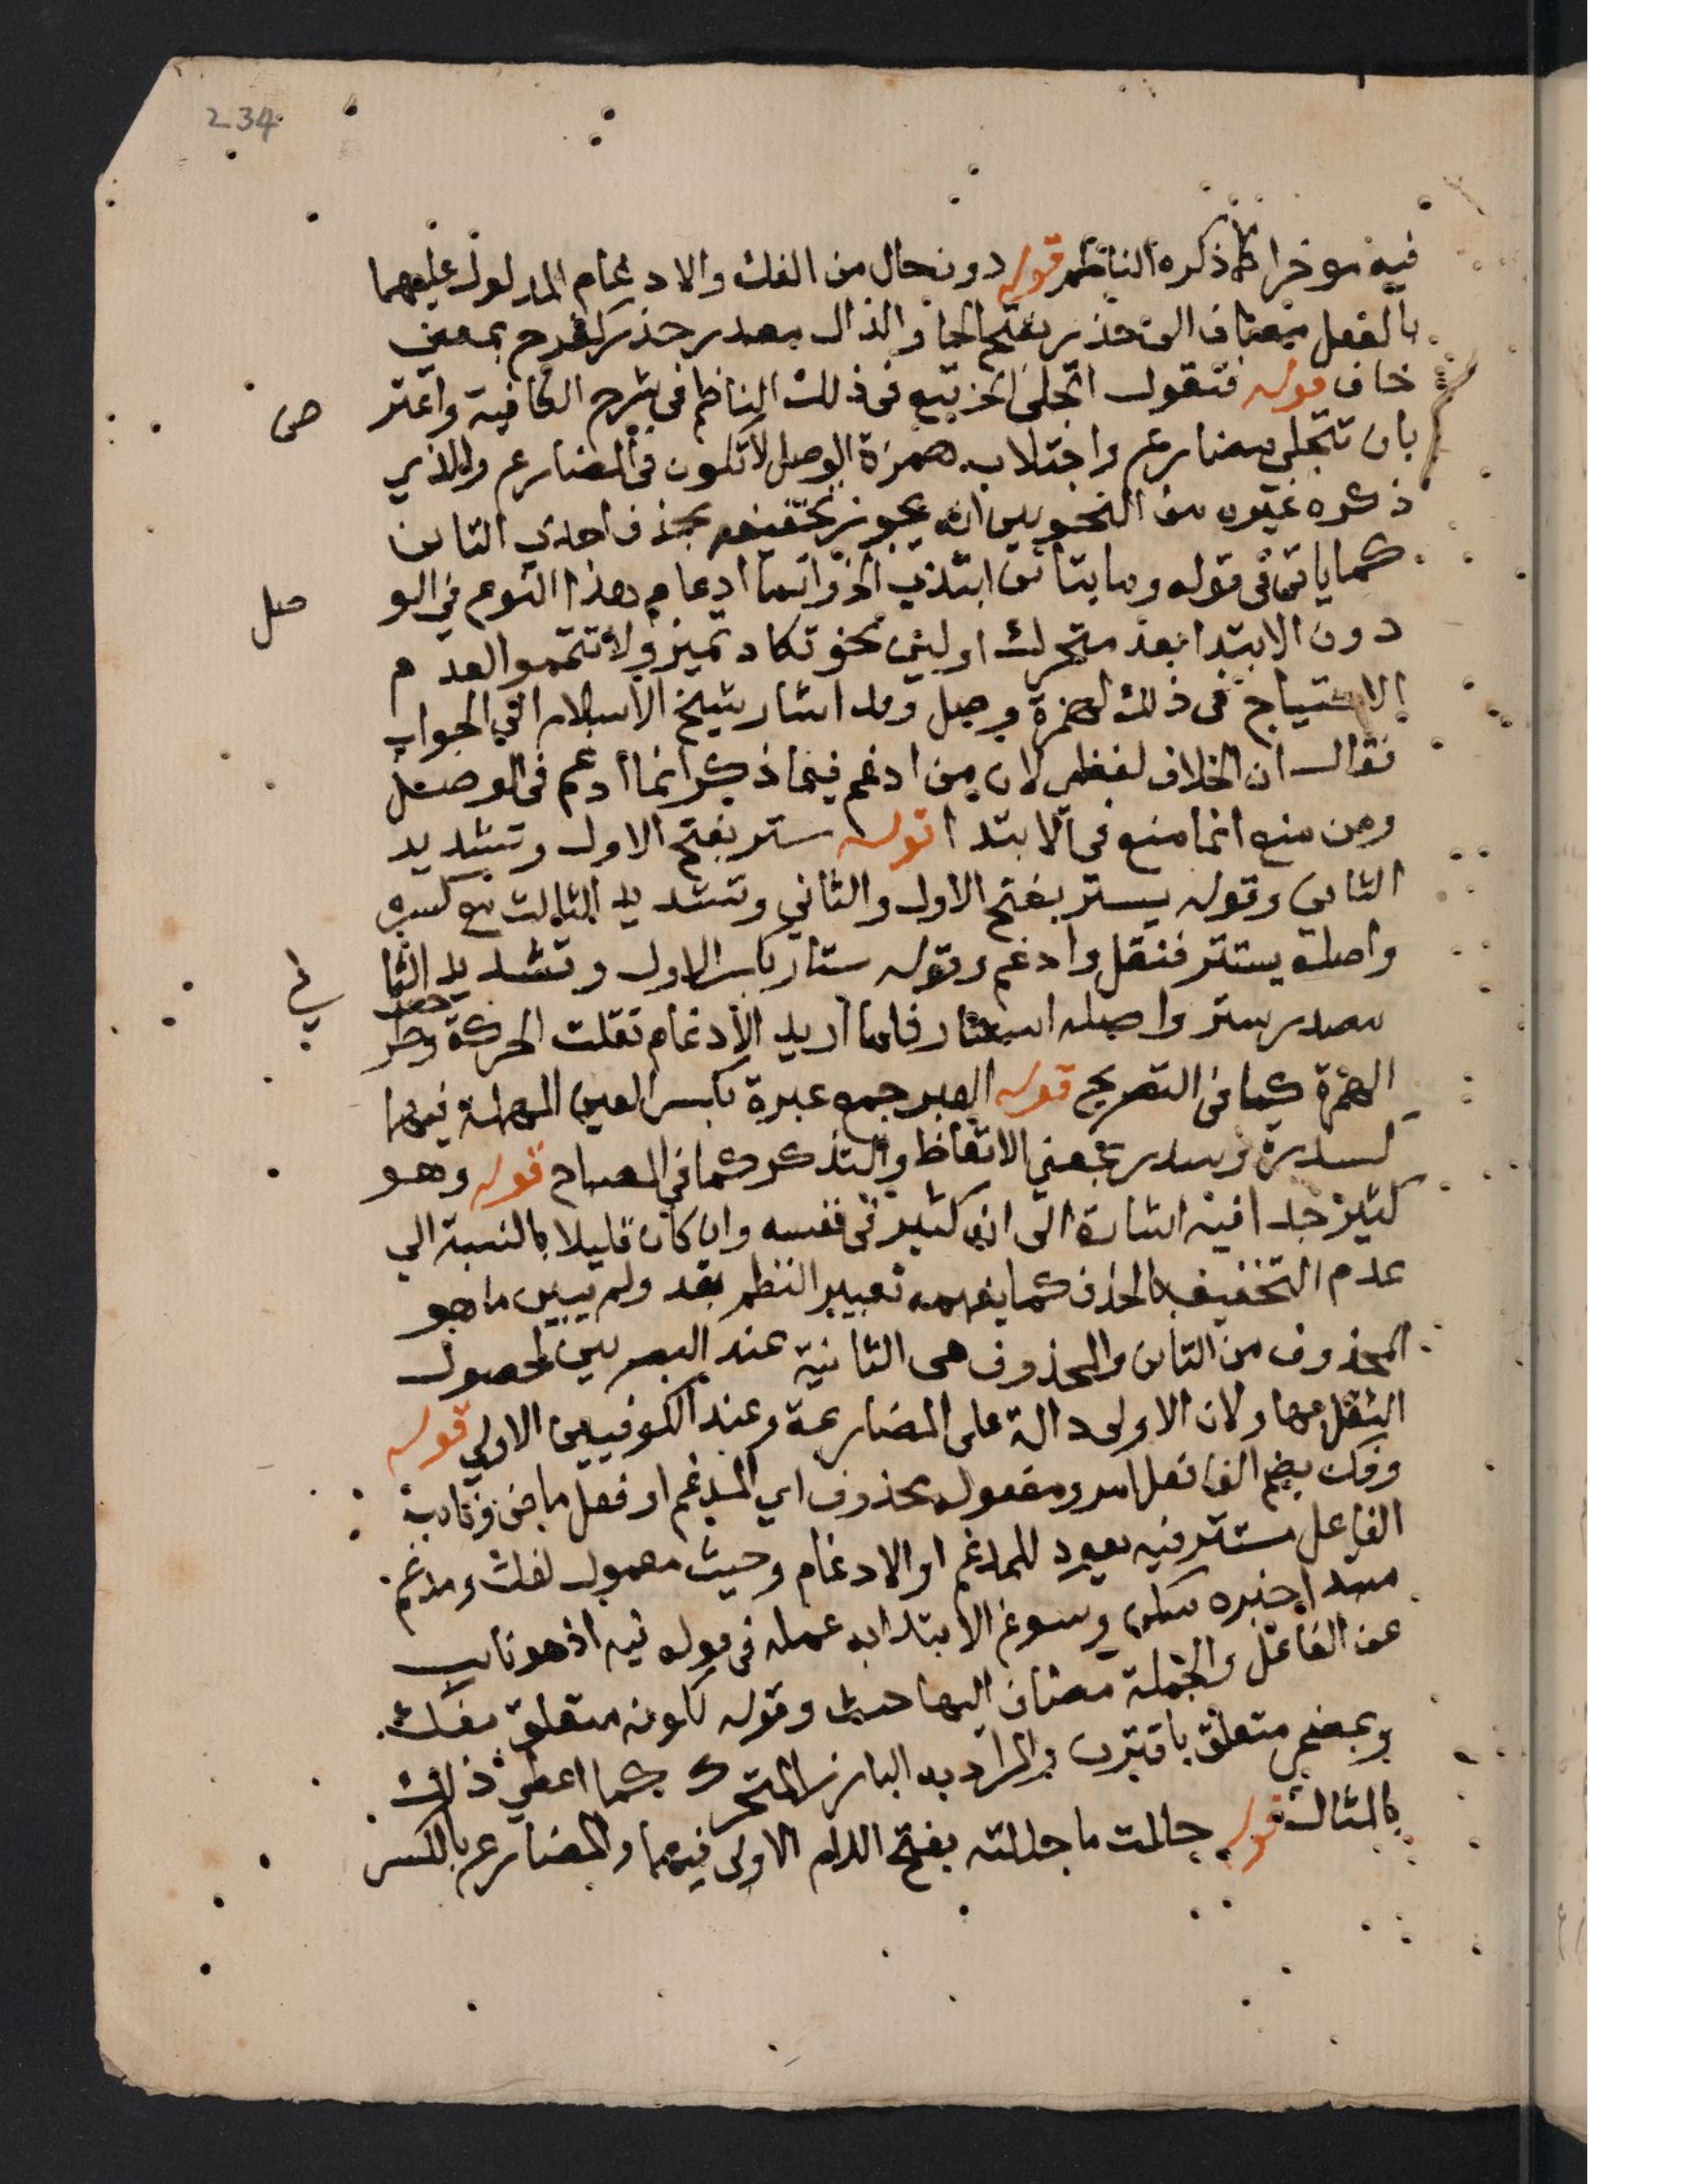 234
فيه موخرا كما ذكره الناظم قوله دون حال من الفك والادغام المدلول عليهما
بالفعل مضاف الى حذر بفتح الحا والذال مصدر حذر كفرح بمعنى
خاف قوله فتقول اتجلى الخ تبع في ذلك الناظم في شرح الكافية واعتر
ض
بان تتجلى مضارع واجتلاب همزة الوصل لا تكون في المضارع والذي
ذكره غيره من النحويين انه يجوز تخفيفه بحذف احدى التاين
كما ياتي في قوله وما بتاين ابتدي الخ وانما ادغام هذا النوع في الو
صل
دون الابتدا بعد متحرك او لين نحو تكاد تميز ولا تتمموا لعدم
الاحتياج في ذلك لهمزة وصل وقد اشار شيخ الاسلام الى الجواب
فقال ان الخلاف لفظي لان من ادغم فيما ذكر انما ادغم في الوصل
ومن منع انما منع في الابتدا قوله ستر بفتح الاول وتشديد
الثاني وقوله يستر بفتح الاول والثاني وتشديد الثالث مع كسره
واصله يستتر فنقل وادغم وقوله ستار بكسر الاول وتشديد الثا
ني
مصدر ستر واصله استتار فلما اريد الادغام نقلت الحركة وطر
حت
الهمزة كما في التصريح قوله العبر جمع عبرة بكسر العين المهملة فيهما
كسدرة وسدر بمعنى الاتعاظ والتذكر كما في المصباح قوله وهو
كثير جدا فيه اشارة الى انه كثير في نفسه وان كان قليلا بالنسبة الي
عدم التخفيف بالحذف كما يفهمه تعبير النظم بقد ولم يبين ما هو
المحذوف من التاين والمحذوف هي الثانية عند البصريين لحصول
الثقل بها ولان الاولى دالة على المضارعة وعند الكوفيين الاولي قوله
وفك بضم الفا فعل امر ومفعوله محذوف اي المدغم او فعل ماض ونايب
الفاعل مستتر فيه يعود للمدغم او الادغام وحيث معمول لفك ومدغم
مبتدا خبره سكن وسوغ الابتدا به عمله في قوله فيه اذ هو نايب
عن الفاعل والجملة مضاف اليها حيث وقوله لكونه متعلق بفك
وبمضمر متعلق باقترن والمراد به البارز المتحرك كما اعطي ذلك
بالمثال قوله حللت ما حللته بفتح اللام الاولى فيهما والمضارع بالكسر